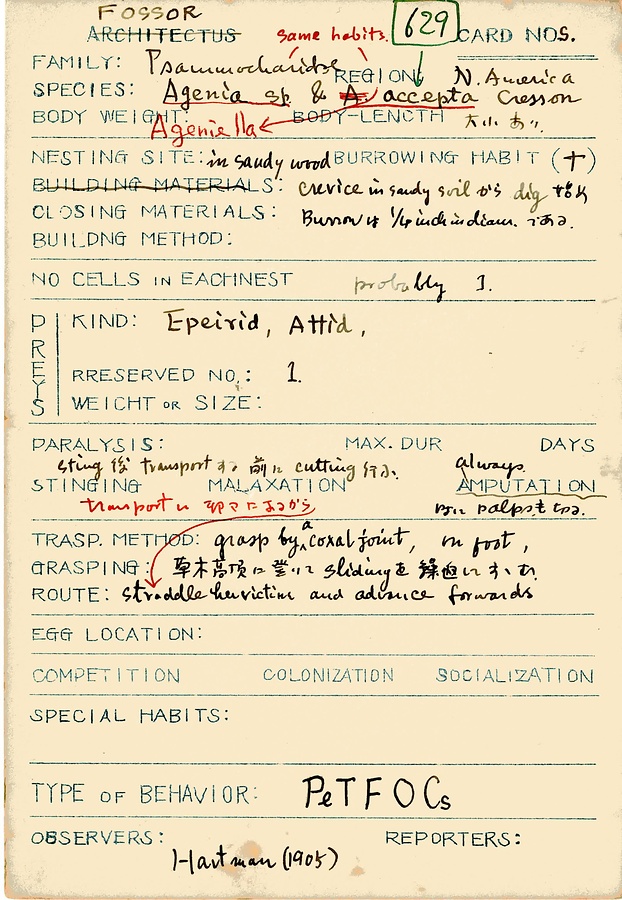 FOSSOR
ARCHITECTUS same habits. 629 CARD NOS.
FAMILY: Psammocharidae REGION: N. America
SPECIES: Agenia sp. & A. accepta Cresson
BODY WEIGHT: Ageniella BODY-LENGTH 大小あり.
NESTING SITE: in sandy wood BURROWING HABIT (+)
BUILDING MATERIALS: crevice in sandy soil から dig
CLOSING MATERIALS: Burrow は 1/4 inch in diam. である.
BUILDNG METHOD:
NO CELLS IN EACHNEST probably 1.
PREYS
KIND: Epeirid, Attid,
RRESERVED NO.: 1.
WEIGHT OR SIZE:
PARALYSIS: MAX. DUR DAYS
sting 後 transport する前に cutting 行う. always
STINGING MALAXATION AMPUTATION
transport に
TRASP. METHOD: grasp by a coxal joint, on foot,
GRASPING: sliding を
ROUTE: straddle her victim and advance forwards
EGG LOCATION:
COMPETITION COLONIZATION SOCIALIZATION
SPECIAL HABITS:
TYPE OF BEHAVIOR: PeTFOCs
OBSERVERS: REPORTERS:
Hartman (1905)